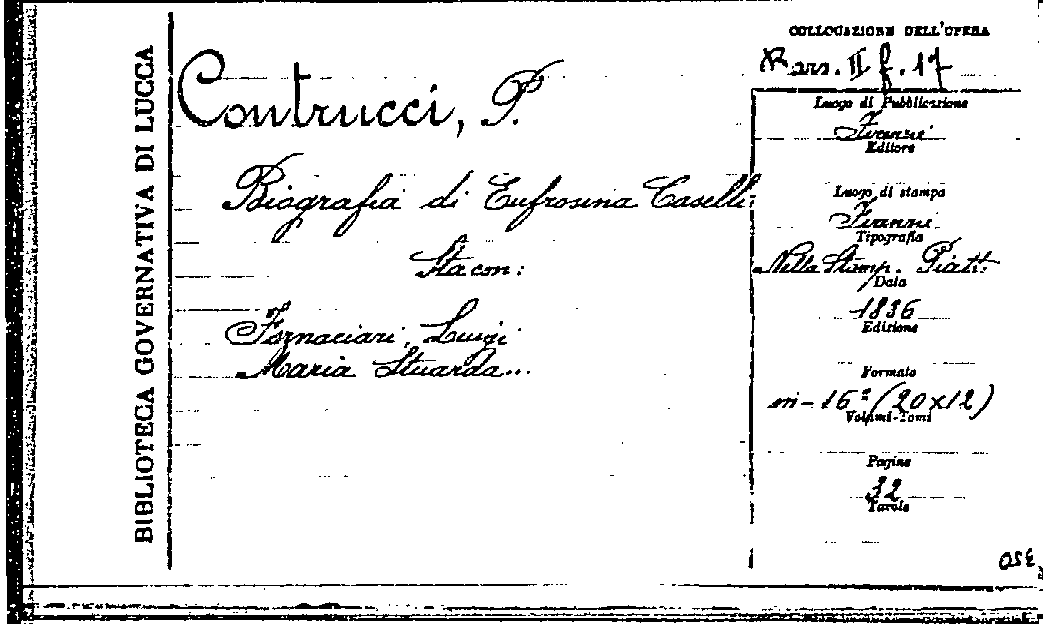 BIBLIOTECA GOVERNATIVA DI LUCCA
Contrucci, P.
Biografia di Eufrosina Caselli
Sta con:
Fornaciari, Luigi
Maria Stuarda...
COLLOCAZIONE DELL'OPERA
II f. 17
Luogo di Pubblicazione
Firenze
Editore
Luogo di stampa
Firenze
Tipografia
Nella Stamp. Piatt.
Data
1836
Edizione
Formato
in-16° (20x12)
Volumi-Tomi
Pagine
32
Tavole